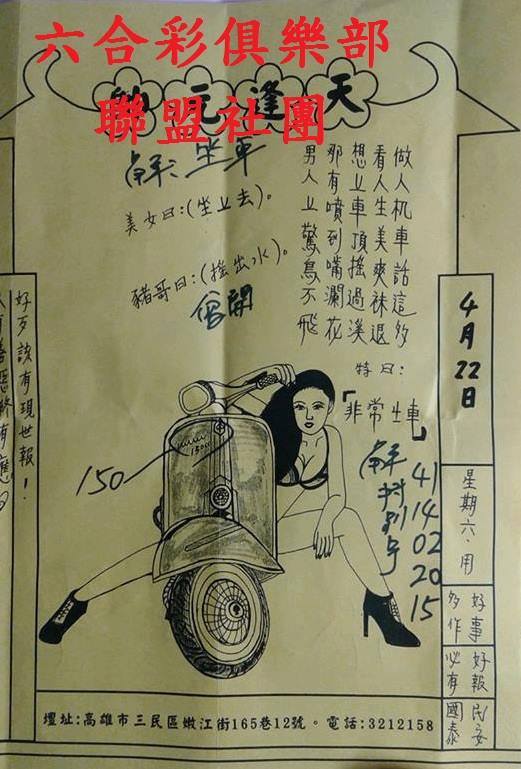 六合彩俱樂部
聯盟社團
天蓬元帥
解:坐車
做人机車話這多
看人生美爽袜退
想上車頂搖過溪
那有噴到嘴瀾花
男人上驚鳥不飛
美女曰:(坐上去)。
豬哥曰:(搖出水)。
會開
特曰:
「非常ㄓ車」
解特別号
41
14
02
20
15
150
150cc
4月22日
星期六.用
好事多作
好報必有
民安國泰
好歹該有現世報!
壇址:高雄市三民區嫩江街165巷12號。電話:3212158